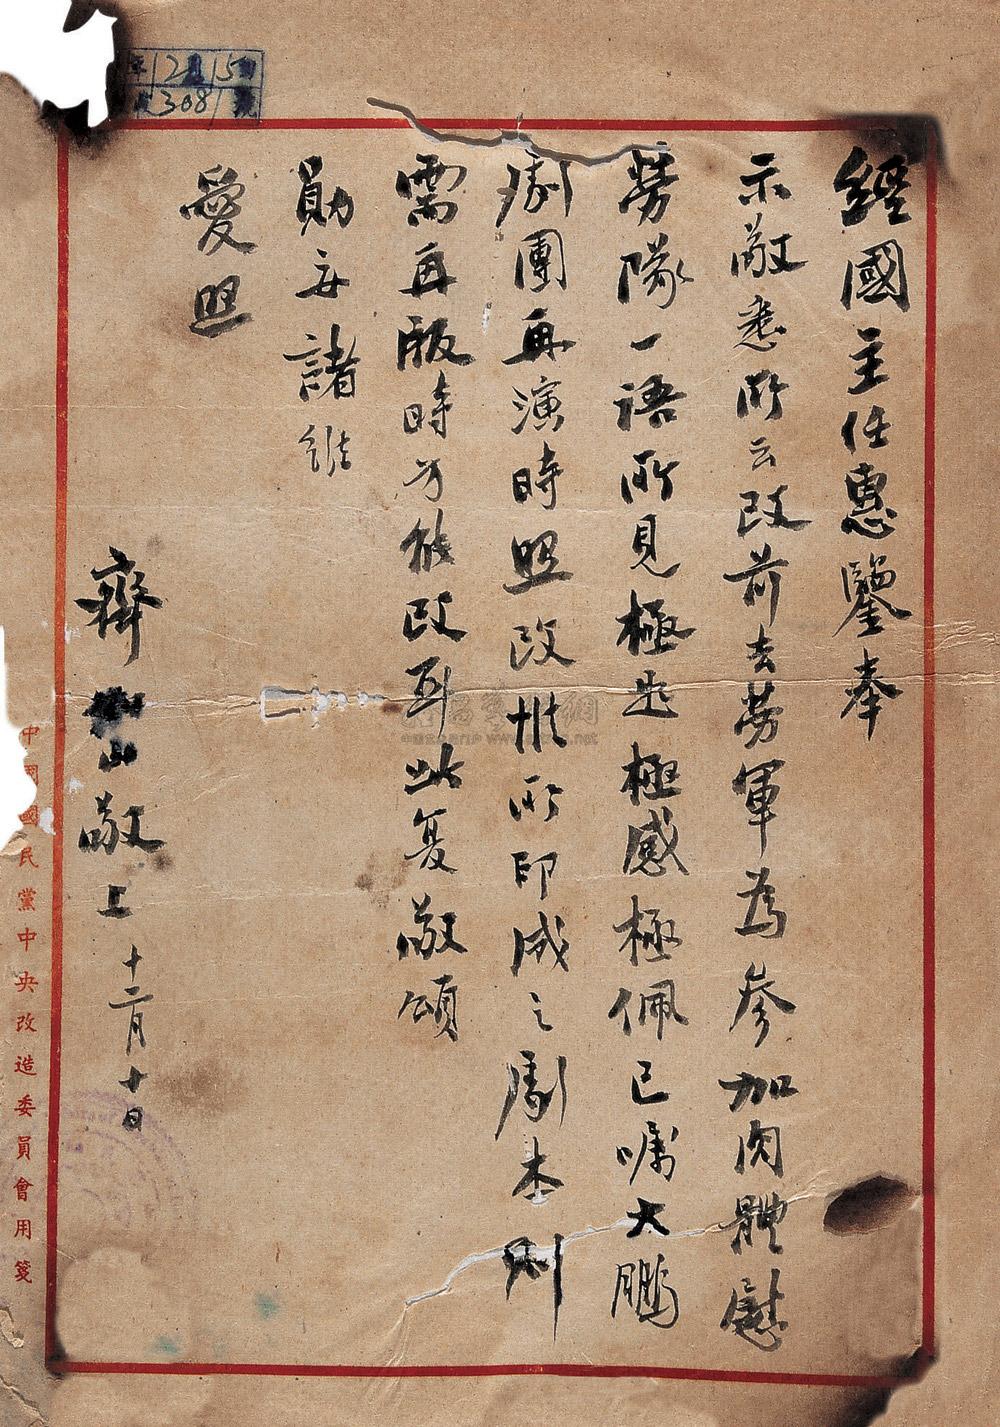 經國主任惠鑒奉
示敬悉所云改前去勞軍為參加肉體慰
勞隊一語所見極是極感極佩已囑大鵬
劇團再演時照改惟所印成之劇本則
需再版時方能改耳此复敬頌
勛安諸維
愛照
齊 山敬上 十二月十日
中國國民黨中央改造委員會用箋
年12月15日
308號